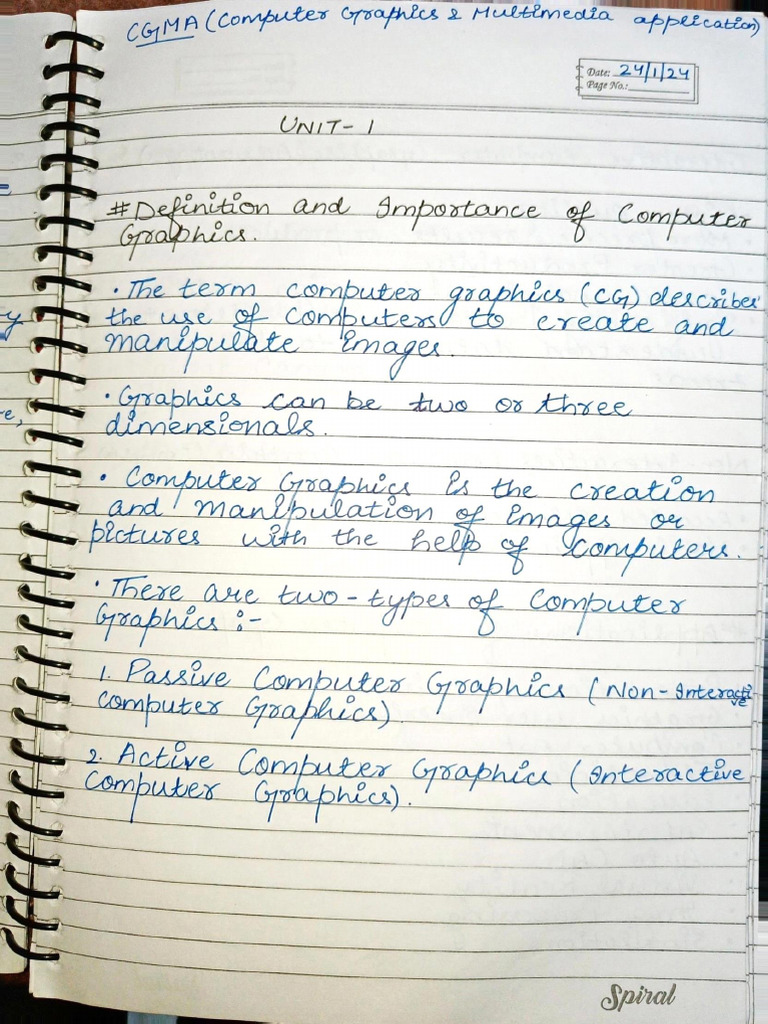 CGMA (Computer Graphics & Multimedia application)
Date: 24/1/24
Page No.:
UNIT-1
#Definition and Importance of Computer
Graphics.
• The term computer graphics (CG) describes
the use of computers to create and
manipulate images.
• Graphics can be two or three
dimensionals.
• Computer Graphics is the creation
and manipulation of images or
pictures with the help of computers.
• There are two-types of Computer
Graphics :-
1. Passive Computer Graphics (Non-Interactive
Computer Graphics)
2. Active Computer Graphics (Interactive
Computer Graphics).
Spiral